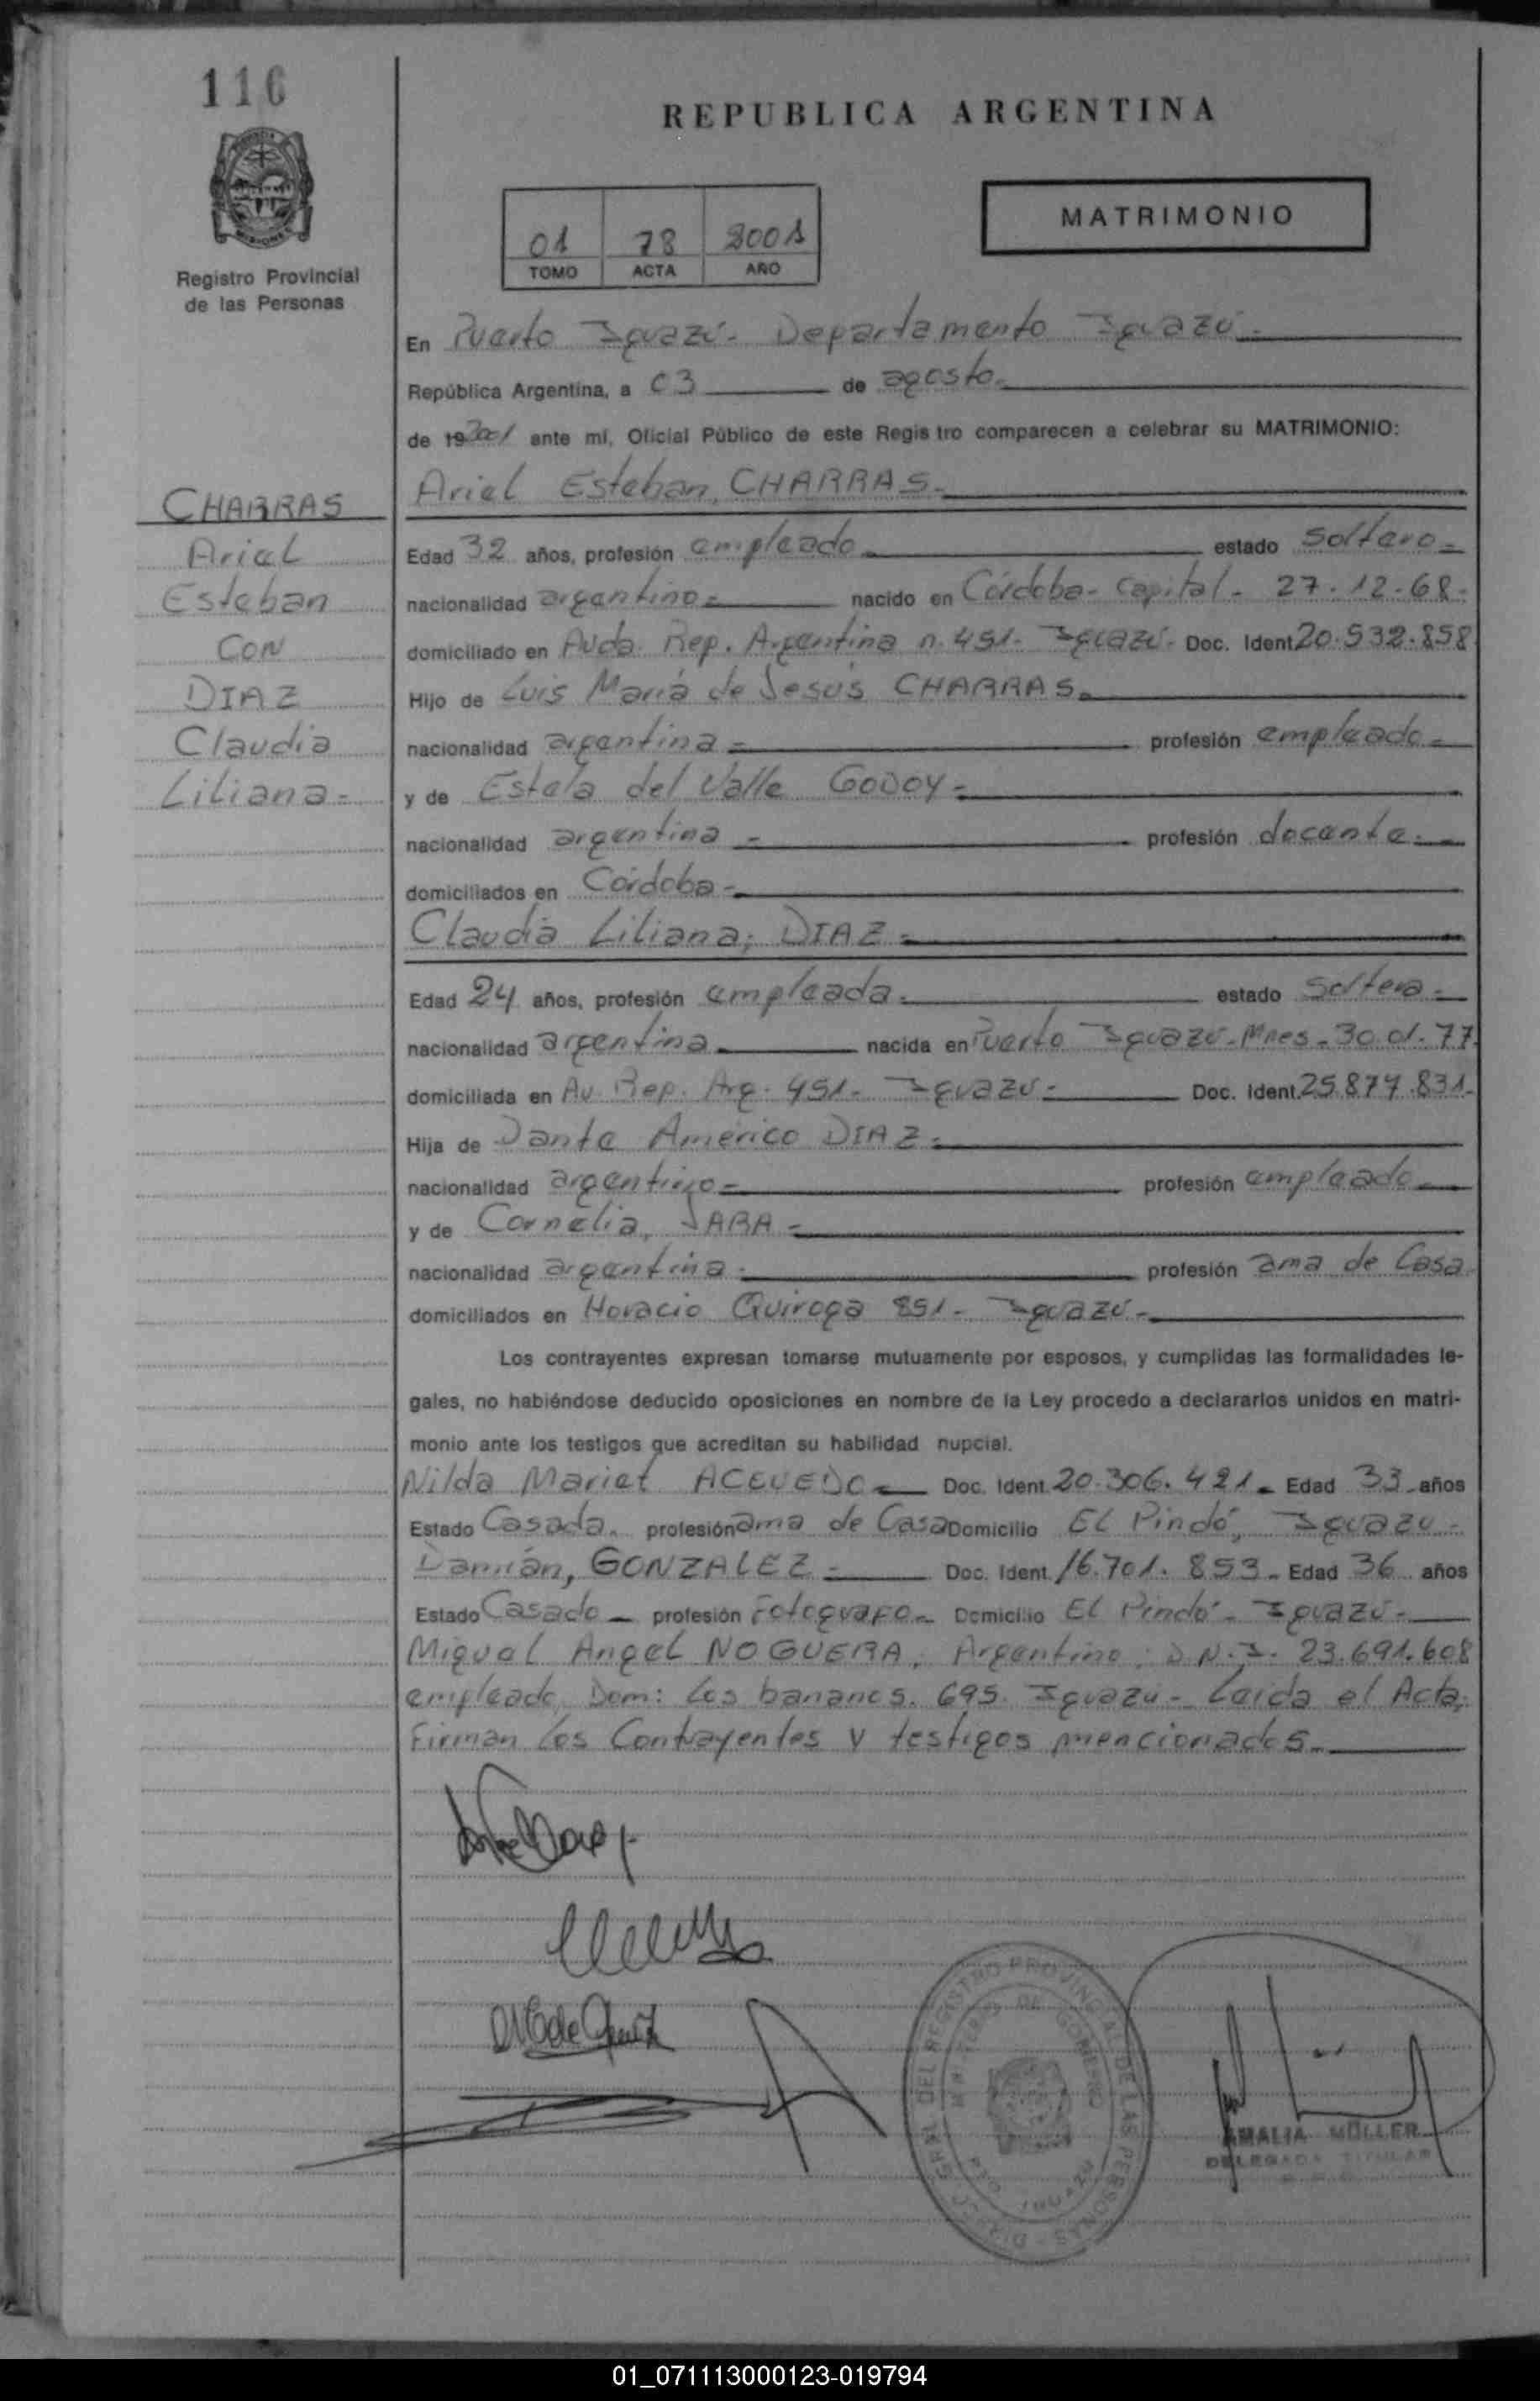 116
REPUBLICA ARGENTINA
MISIONES
Registro Provincial
de las Personas
MATRIMONIO
01 78 2001
TOMO ACTA AÑO
En Puerto Iguazú- Departamento Iguazú-
República Argentina, a 03 de agosto-
de 192001 ante mí, Oficial Público de este Registro comparecen a celebrar su MATRIMONIO:
CHARRAS
Ariel
Esteban
CON
DIAZ
Claudia
Liliana-
Ariel Esteban, CHARRAS-
Edad 32 años, profesión empleado estado soltero-
nacionalidad argentino- nacido en Córdoba- Capital- 27.12.68-
domiciliado en Avda. Rep. Argentina n. 451- Iguazú- Doc. Ident. 20.532.858
Hijo de Luis María de Jesús CHARRAS-
nacionalidad argentina- profesión empleado-
y de Estela del Valle GODOY-
nacionalidad argentina- profesión docente-
domiciliados en Córdoba-
Claudia Liliana; DIAZ-
Edad 24 años, profesión empleada- estado soltera-
nacionalidad argentina- nacida en Puerto Iguazú- Mnes- 30.01.77
domiciliada en Av. Rep. Arg. 451- Iguazú- Doc. Ident. 25.874.831-
Hija de Dante Américo DIAZ-
nacionalidad argentino- profesión empleado-
y de Cornelia, JARA-
nacionalidad argentina- profesión ama de Casa
domiciliados en Horacio Quiroga 851- Iguazú-
Los contrayentes expresan tomarse mutuamente por esposos, y cumplidas las formalidades le-
gales, no habiéndose deducido oposiciones en nombre de la Ley procedo a declararlos unidos en matri-
monio ante los testigos que acreditan su habilidad nupcial.
Nilda Mariet ACEVEDO- Doc. Ident. 20.306.421- Edad 33 años
Estado Casada- profesión ama de Casa Domicilio El Pindó, Iguazú-
Damián, GONZALEZ- Doc. Ident. 16.701.853- Edad 36 años
Estado Casado- profesión Fotógrafo- Domicilio El Pindó- Iguazú-
Miguel Angel NOGUERA, Argentino, D.N.I. 23.691.608
empleado, Dom: Los bananos. 695. Iguazú- Leída el Acta,
Firman los Contrayentes y testigos mencionados-
DIRECC. GRAL. DEL REGISTRO PROVINCIAL DE LAS PERSONAS
MINISTERIO DE GOBIERNO
AMALIA MÜLLER
DELEGADA TITULAR
01_071113000123-019794